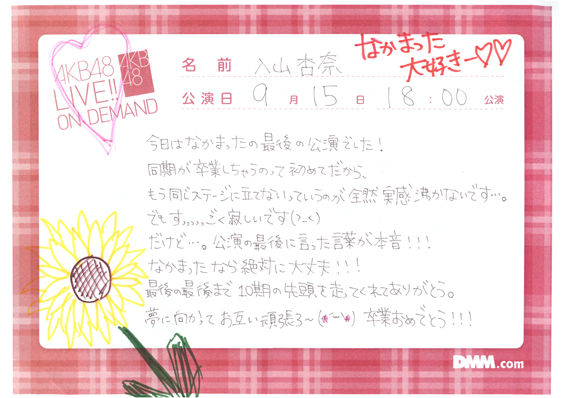 AKB48
LIVE!!
ON DEMAND
AKB
48
名前 入山杏奈
なかまった
大好きー♡♡
公演日 9月15日 18:00 公演
今日はなかまったの最後の公演でした!
同期が卒業しちゃうのって初めてだから、
もう同じステージに立てないっていうのが全然実感沸かないです…。
でもすっっっっごく寂しいです(>_<)
だけど…。公演の最後に言った言葉が本音!!!
なかまったなら絶対に大丈夫!!!
最後の最後まで10期の先頭を走ってくれてありがとう。
夢に向かってお互い頑張ろ〜(*˘︶˘*) 卒業おめでとう!!!
DMM.com